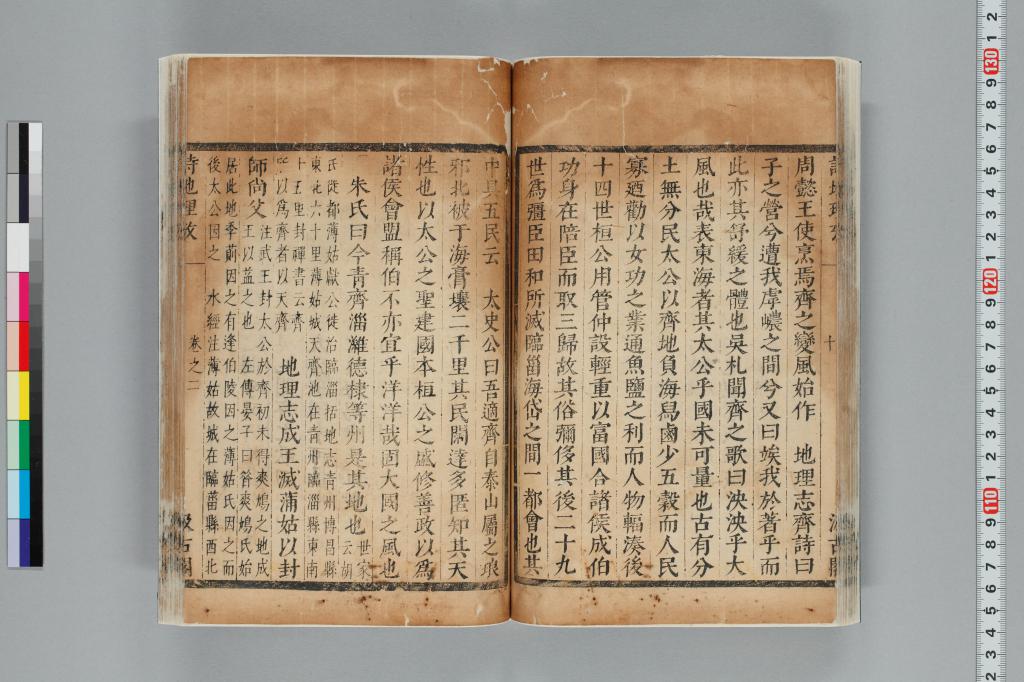 詩地理攷 十 汲古閣
周懿王使烹焉齊之變風始作　地理志齊詩曰
子之營兮遭我虖嶩之間兮又曰竢我於著乎而
此亦其舒緩之體也吳札聞齊之歌曰泱泱乎大
風也哉表東海者其太公乎國未可量也古有分
土無分民太公以齊地負海舄鹵少五穀而人民
寡迺勸以女功之業通魚鹽之利而人物輻湊後
十四世桓公用管仲設輕重以富國合諸侯成伯
功身在陪臣而取三歸故其俗彌侈其後二十九
世爲彊臣田和所滅臨甾海岱之間一都會也其
中具五民云　太史公曰吾適齊自泰山屬之琅
邪北被于海膏壤二千里其民闊達多匿知其天
性也以太公之聖建國本桓公之盛修善政以爲
諸侯會盟稱伯不亦宜乎洋洋哉固大國之風也
朱氏曰今青齊淄濰德棣等州是其地也
世家
云胡
氏徙都薄姑獻公徙治臨淄括地志青州博昌縣
東北六十里薄姑城天齊池在青州臨淄縣東南
十五里封禪書云齊
以爲齊者以天齊
地理志成王滅蒲姑以封
師尚父
注武王封太公於齊初未得爽鳩之地成
王以益之也　左傳晏子曰昝爽鳩氏始
居此地季萴因之有逢伯陵因之薄姑氏因之而
後太公因之　水經注薄姑故城在臨菑縣西北
詩地理攷 卷之二 汲古閣